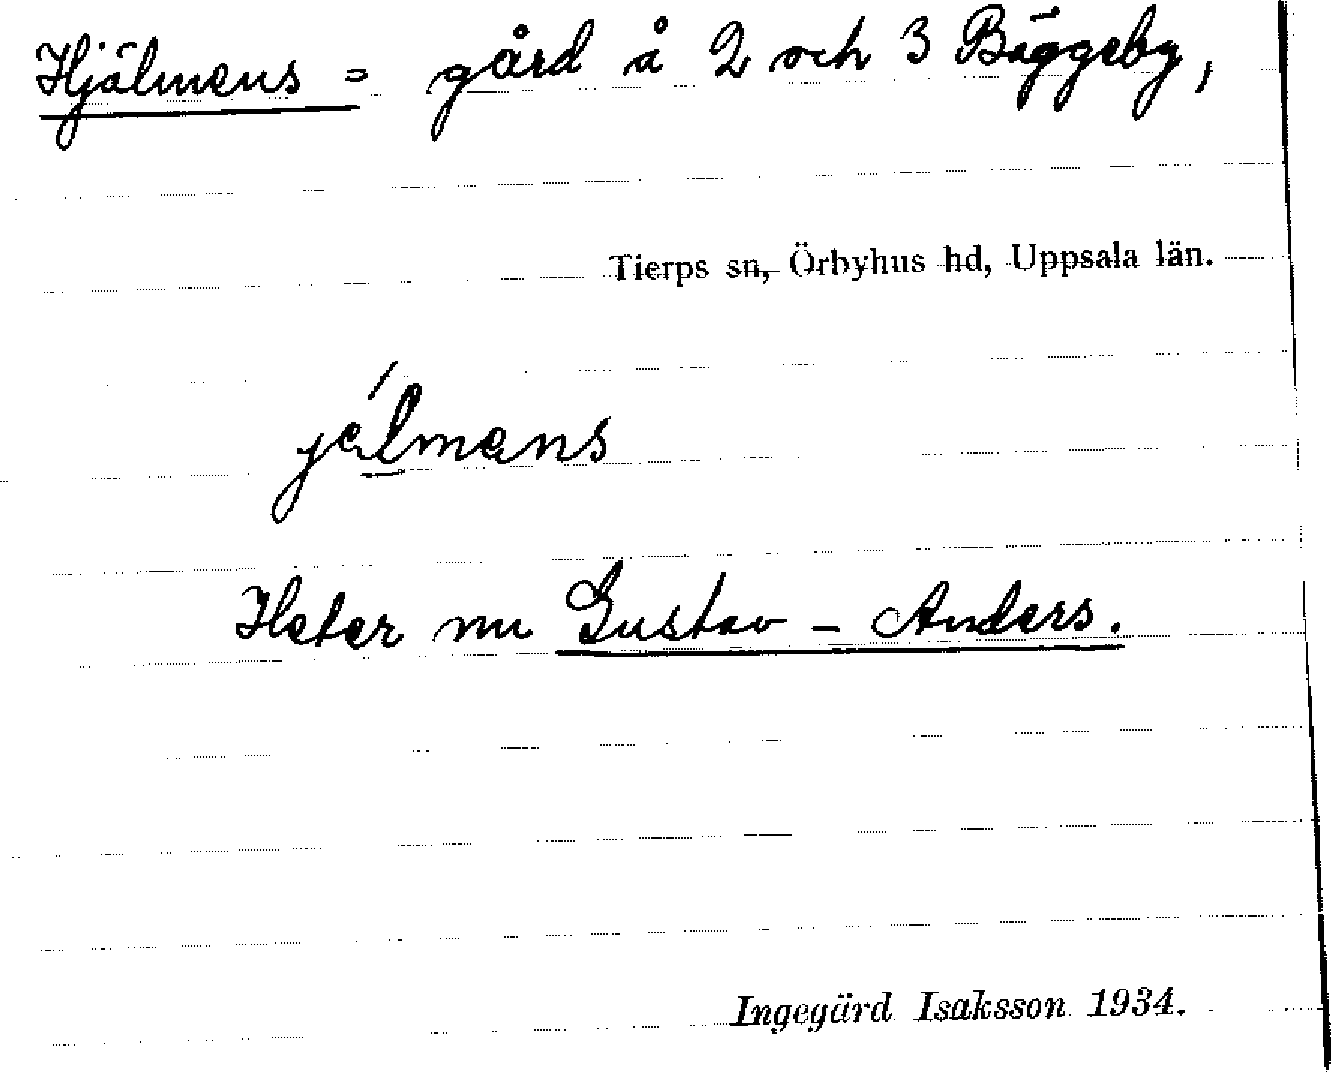 Hjälmens = gård å 2 och 3 Bäggeby,
Tierps sn, Örbyhus hd, Uppsala län.
jélmens
Heter nu Gustav - Anders.
Ingegärd Isaksson 1934.